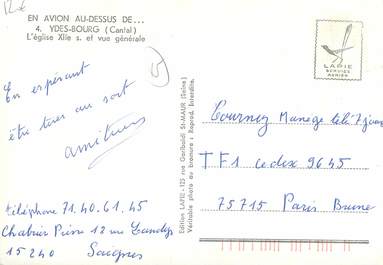 12€
EN AVION AU-DESSUS DE...
4. YDES-BOURG (Cantal)
L'église XIIe s. et vue générale
LAPIE
SERVICE
AERIEN
En espérant
être tirer au sort
amitiés
téléphone 71.40.61.45
Chabrier Pierre 12 rue
15240 Saignes
Edition LAPIE - 125 rue Garibaldi St-MAUR (Seine)
Véritable photo au bromure : Reprod. interdite.
Tournez Manege télé 7 jours
TF1 cedex 9645
75715 Paris Brune